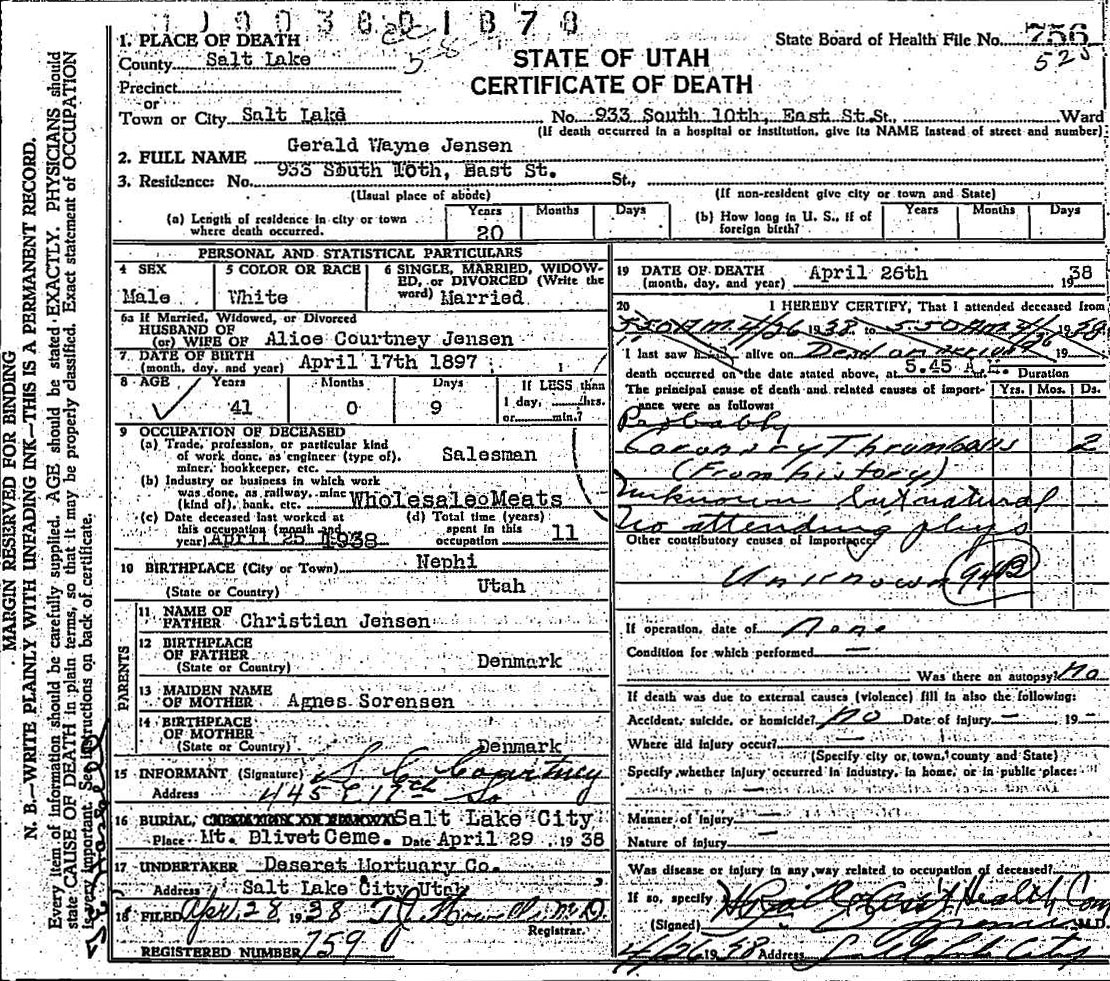 1 9 0 3 8 0 1 8 7 8
1. PLACE OF DEATH
County Salt Lake
Precinct
or
Town or City Salt Lake
STATE OF UTAH
CERTIFICATE OF DEATH
State Board of Health File No. 756
525
No. 933 South 10th, East St. St., Ward
(If death occurred in a hospital or institution, give its NAME instead of street and number)
2. FULL NAME Gerald Wayne Jensen
3. Residence: No. 933 South 10th, East St. St.,
(Usual place of abode) (If non-resident give city or town and State)
(a) Length of residence in city or town where death occurred. Years 20 Months Days
(b) How long in U. S., if of foreign birth? Years Months Days
PERSONAL AND STATISTICAL PARTICULARS
4 SEX Male
5 COLOR OR RACE White
6 SINGLE, MARRIED, WIDOWED, or DIVORCED (Write the word) Married
6a If Married, Widowed, or Divorced
HUSBAND OF
(or) WIFE OF Alice Courtney Jensen
7 DATE OF BIRTH
(month, day, and year) April 17th 1897
8 AGE Years 41 Months 0 Days 9
If LESS than
1 day, hrs.
or min.?
9 OCCUPATION OF DECEASED
(a) Trade, profession, or particular kind
of work done, as engineer (type of),
miner, bookkeeper, etc. Salesman
(b) Industry or business in which work
was done, as railway, mine
(kind of), bank, etc. Wholesale Meats
(c) Date deceased last worked at
this occupation (month and
year) April 25 1938
(d) Total time (years)
spent in this
occupation 11
10 BIRTHPLACE (City or Town) Nephi
(State or Country) Utah
PARENTS
11 NAME OF
FATHER Christian Jensen
12 BIRTHPLACE
OF FATHER
(State or Country) Denmark
13 MAIDEN NAME
OF MOTHER Agnes Sorensen
14 BIRTHPLACE
OF MOTHER
(State or Country) Denmark
15 INFORMANT (Signature) S C Courtney
Address 445 E 17th So
16 BURIAL, Salt Lake City
Place Mt. Olivet Ceme. Date April 29 19 38
17 UNDERTAKER Deseret Mortuary Co.
Address Salt Lake City Utah
18 FILED Apr. 28, 1938 M.D.
Registrar.
REGISTERED NUMBER 759
19 DATE OF DEATH
(month, day, and year) April 26th 19 38
20 I HEREBY CERTIFY, That I attended deceased from
5:50 A.M. 4/26 1938 to 5:50 A.M. 4/26 1938
I last saw h alive on Dead on arrival 19
death occurred on the date stated above, at 5.45 A.M. Duration
The principal cause of death and related causes of importance were as follows: Yrs. Mos. Ds.
Probably
Coronary Thrombosis 2
(From history)
Unknown but natural
No attending phys
Other contributory causes of importance:
Unknown 94B
If operation, date of None
Condition for which performed —
Was there an autopsy? No
If death was due to external causes (violence) fill in also the following:
Accident, suicide, or homicide? No Date of injury — 19 -
Where did injury occur? —
(Specify city or town, county and State)
Specify whether injury occurred in industry, in home, or in public place:
—
Manner of Injury —
Nature of injury —
Was disease or injury in any way related to occupation of deceased?
If so, specify City Health Com
(Signed) M.D.
4/26 1938 Address Salt Lake City
MARGIN RESERVED FOR BINDING
N. B.—WRITE PLAINLY WITH UNFADING INK—THIS IS A PERMANENT RECORD.
Every item of information should be carefully supplied. AGE should be stated EXACTLY. PHYSICIANS should
state CAUSE OF DEATH in plain terms, so that it may be properly classified. Exact statement of OCCUPATION
is very important. See instructions on back of certificate.